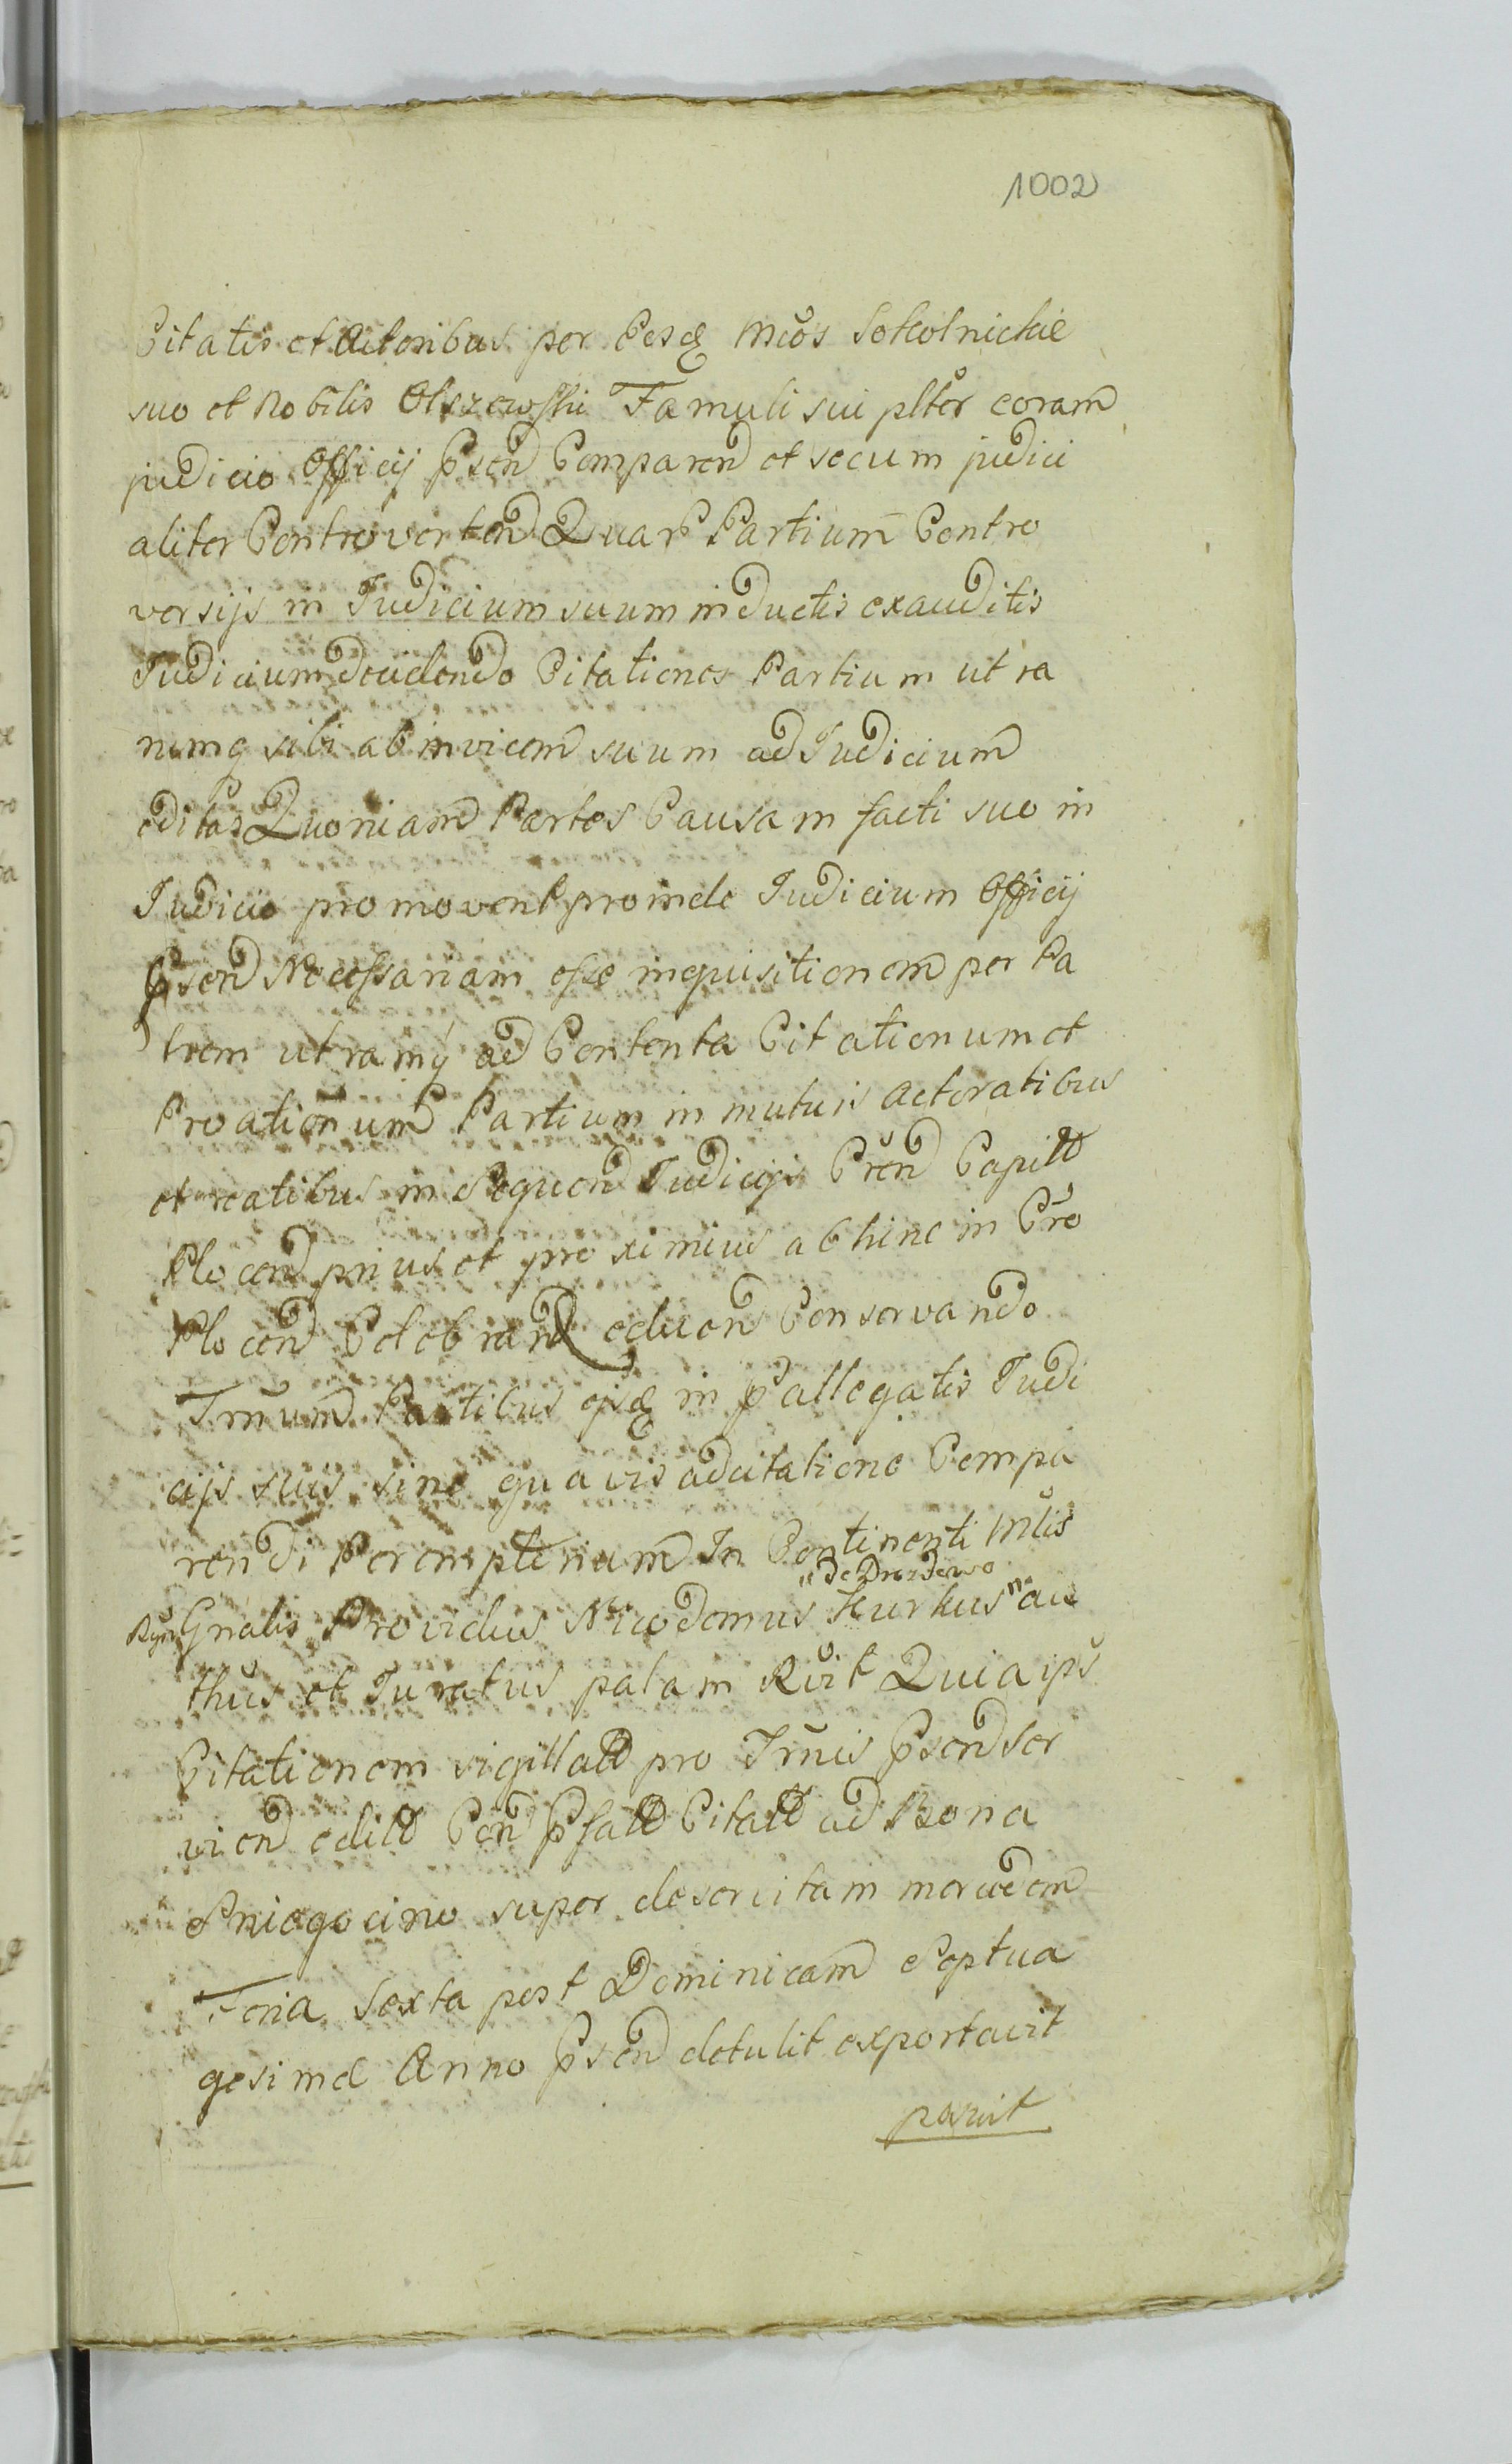 1002
Citatis et Actoribus per Gesq Mcos Sokolnickie
suo et Nobilis Olszewski Famuli sui plter coram
judicio Officij Psen Comparen et secum judici
aliter Controverten Quar Partium Contro
versijs in Judicium suum inductis exauditis
Judicium decidendo Citationes Partium utra
numq sibi ab invicem suum ad Judicium
editas Quoniam Partes Causam facti suo in
Judicio promovent proinde Judicium Officij
Psen Necessariam esse inquisitionem per Pa
trem utramq ad Contenta Citationum et
Proationum Partium in mutuis Actoratibus
et reatibus in Sequen Judicijs Pren Capitt
Plocen prius et proximius abhinc in Cro
Plocen Celebran educen Conservando
Trnum Partibus ejsq in pallegatis Judi
cijs suis sine quavis adcitatione Compa
rendi Peremptorium In Continenti Mlis
"de Drozdewo
Rgni Gnalis Providus Nicodemus Kurkus" au
thus et Juratus palam Rvit Quia ips
Citationem sigillatt pro Trnis Psen ser
vien editt Con Pfatt Citatt ad Bona
Pniegocino super deservitam moriedem
Feria Sexta post Dominicam Septua
gesimae Anno Psen detulit exportavit
posuit